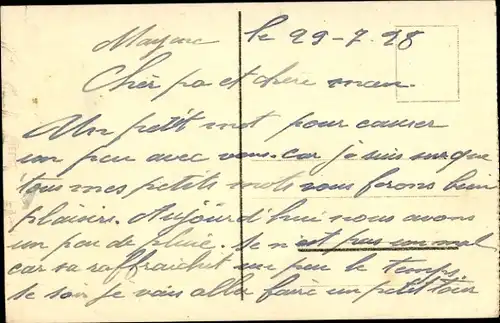 le 29-7.28
Cher pa et chère man.
Un petit mot pour causer
un peu avec vous. car je suis sur que
tous mes petits mots vous ferons bien
plaisirs. Aujourd'hui nous avons
un peu de pluie. Se n'est pas un mal
car sa raffraichit un peu le temps.
se soir je vais aller faire un petit tour